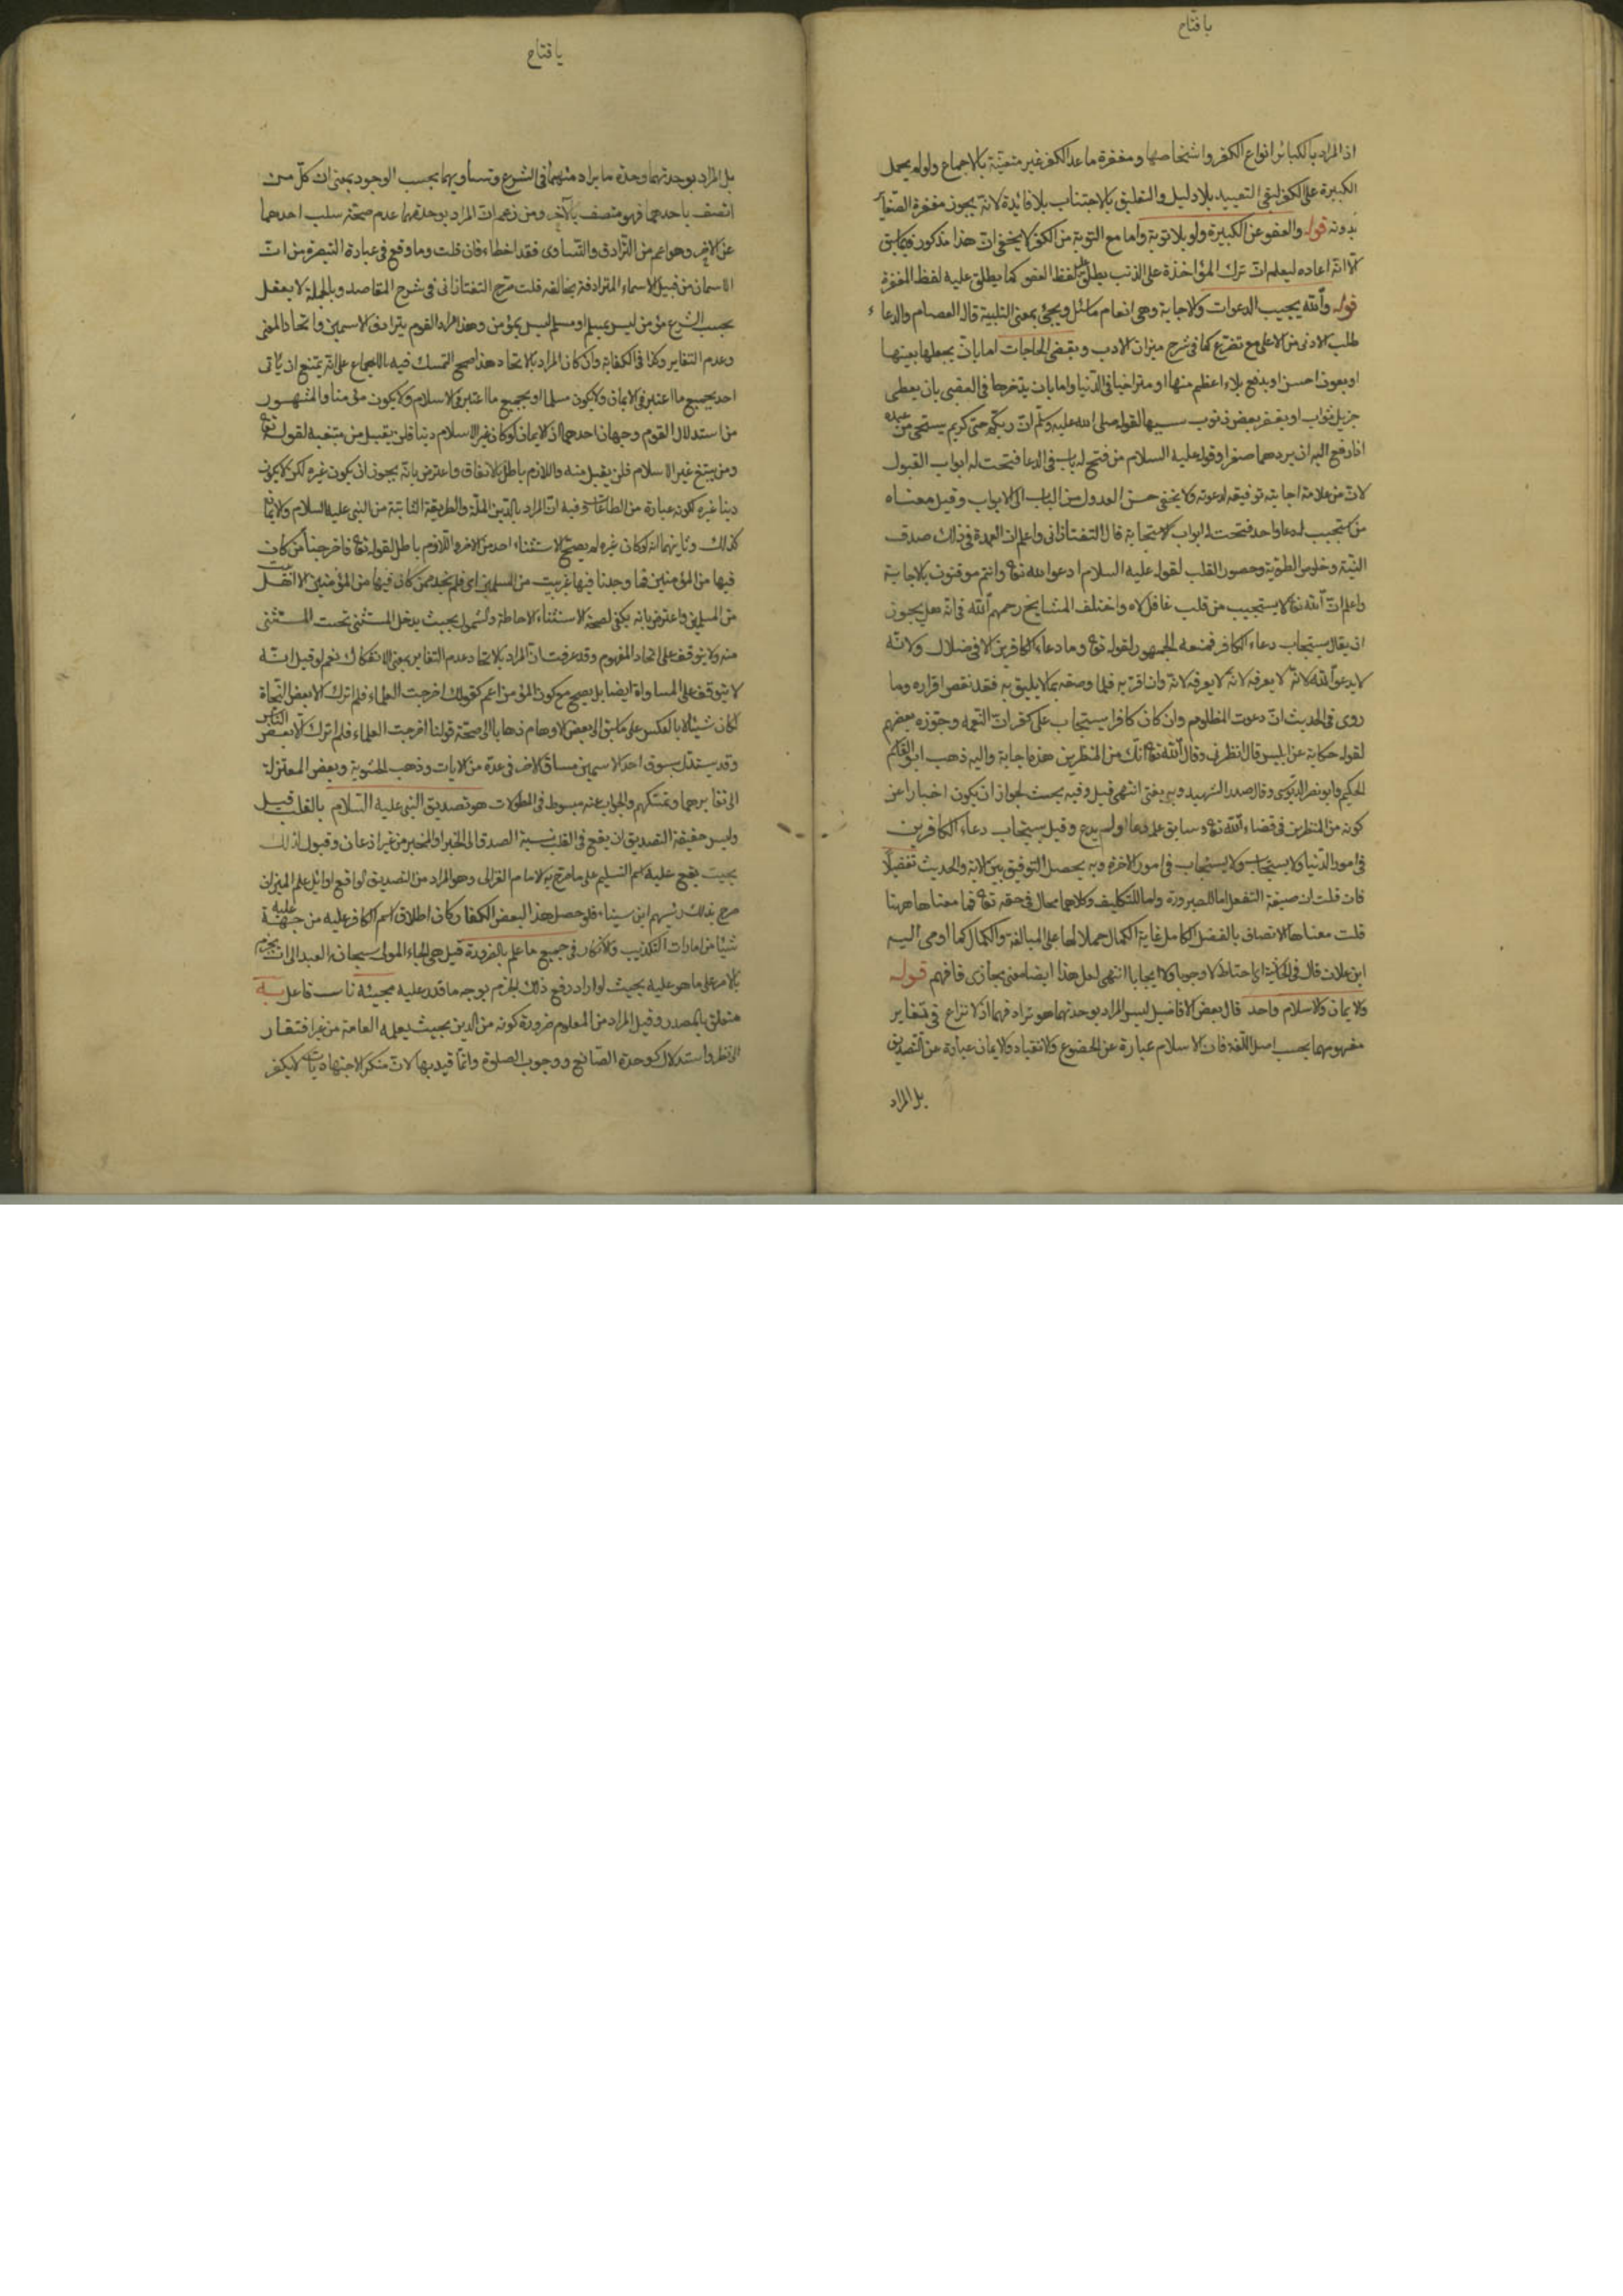 يا فتاح
اذ المراد بالكبائر انواع الكفر واشخاصها ومغفرة ما عدا الكفر غير متعينة بالاجماع ولو لم يحمل
الكبيرة على الكفر لبقي التقييد بلا دليل والتعليق بالاجتناب بلا فائدة لانه يجوز مغفرة الصغائر
بدونه قوله والعفو عن الكبيرة ولو بلا توبة واما مع التوبة من الكفر لا يخفى ان هذا مذكور فيما سبق
الا انه اعاده ليعلم ان ترك المؤاخذة على الذنب يطلق عليه لفظ العفو كما يطلق عليه لفظ المغفرة
قوله والله يجيب الدعوات والاجابة وهي انعام ما سئل ويجئ بمعنى التلبية قال العصام والدعاء
طلب الادنى من الاعلى مع تضرع كما في شرح ميزان الادب ويقضي الحاجات اما بان يجعلها بعينها
او بعوض احسن او بدفع بلاء اعظم منها او متراخيا في الدنيا واما بان يدخرها في العقبى بان يعطي
جزيل ثواب او يغفر بعض ذنوب لقوله صلى الله عليه وسلم ان ربكم حيي كريم يستحيي من عبده
اذا رفع اليه ان يردهما صفرا وقوله عليه السلام من فتح له باب في الدعا فتحت له ابواب القبول
لان من علامة اجابته توفيقه لدعوته ولا يخفى حسن العدول من الباب الى الابواب وقيل معناه
من استجيب له دعا واحد فتحت له ابواب الاستجابة قال التفتازاني واعلم ان العمدة في ذلك صدق
النية وخلوص الطوية وحضور القلب لقوله عليه السلام ادعوا الله تعالى وانتم موقنون بالاجابة
واعلم ان الله تعالى لا يستجيب من قلب غافل لاه واختلف المشايخ رحمهم الله في انه هل يجوز
ان يقال يستجاب دعاء الكافر فمنعه الجمهور لقوله تعالى وما دعاء الكافرين الا في ضلال ولانه
لا يدعو الله لانه لا يعرفه لانه وان اقر به فلما وصفه بما لا يليق به فقد نقض اقراره وما
روي في الحديث ان دعوت المظلوم وان كان كافرا يستجاب على كفران النعمة وجوزه بعضهم
لقوله حكاية عن ابليس قال انظرني وقال الله تعالى انك من المنظرين هذه اجابة واليه ذهب ابو القاسم
الحكيم وابو نصر الدبوسي وقال صدر الشهيد وبه يفتى انتهى قيل وفيه بحث لجواز ان يكون اخبارا عن
كونه من المنظرين في قضاء الله تعالى وسابق علمه دعا او لم يدع وقيل يستجاب دعاء الكافرين
في امور الدنيا ولا يستجاب في امور الاخرة وبه يحصل التوفيق بين الاية والحديث تفضلا
فان قلت ان صيغة التفعل اما للصيرورة واما للتكليف وكلاهما محال في حقه تعالى فما معناها ههنا
قلت معناها الاتصاف بالفضل الكامل غاية الكمال حملا لها على المبالغة والكمال كما اومى اليه
ابن علان قال في الحاشية اي احتياطا لا وجوبا ولا ايجابا انتهى لعل هذا ايضا معنى مجازي فافهم قوله
والايمان والاسلام واحد قال بعض الافاضل ليس المراد بوحدتهما هو ترادفهما اذ لا نزاع في تغاير
مفهوميهما بحسب اصل اللغة فان الاسلام عبارة عن الخضوع والانقياد والايمان عبارة عن التصديق
بل المراد
يا فتاح
بل المراد بوحدتهما وحدة ما يراد منهما في الشرع وتساويهما بحسب الوجود بمعنى ان كل من
اتصف باحدهما فهو متصف بالآخر ومن زعم ان المراد بوحدتهما عدم صحة سلب احدهما
عن الاخر وهو اعم من الترادف والتساوي فقد اخطاء فان قلت وما وقع في عبارة التبصرة من ان
الاسمان من قبيل الاسماء المترادفة يخالفه قلت صرح التفتازاني في شرح المقاصد وبالجملة لا يعقل
بحسب الشرع مؤمن ليس بمسلم او مسلم ليس بمؤمن وهذا مراد القوم بترادف الاسمين واتحاد المعنى
وعدم التغاير وكذا في الكفاية وان كان المراد بالاتحاد هذا صح التمسك فيه بالاجماع على انه يمتنع ان ياتي
احد بجميع ما اعتبر في الايمان ولا يكون مسلما او بجميع ما اعتبر في الاسلام ولا يكون مؤمنا والمشهور
من استدلال القوم وجهان احدهما ان الايمان لو كان غير الاسلام دينا فلن يقبل من مبتغيه لقوله تعالى
ومن يبتغ غير الاسلام فلن يقبل منه واللازم باطل بالاتفاق واعترض بانه يجوز ان يكون غيره لكن لا يكون
دينا غيره لكونه عبارة من الطاعات وفيه ان المراد بالدين الملة والطريقة الثابتة من النبي عليه السلام والايمان
كذلك وثانيهما انه لو كان غيره لم يصح الاستثناء احد من الاخر واللازم باطل لقوله تعالى فاخرجنا من كان
فيها من المؤمنين فما وجدنا فيها غير بيت من المسلمين اي فلم نجد ممن كان فيها من المؤمنين الا
من المسلمين واعترض بانه يكفي لصحة الاستثناء الاحاطة والشمول بحيث يدخل المستثنى تحت المستثنى
منه ولا يتوقف على اتحاد المفهوم وقد عرفت ان المراد بالاتحاد عدم التغاير بمعنى الانفكاك نعم لو قيل انه
لا يتوقف على المساواة ايضا بل يصح مع كون المؤمن اعم كقولك اخرجت العلماء فلم اترك الا بعض النحاة
لكان شيئا لا بالعكس على ما سبق الى بعض الاوهام ذهابا الى صحة قولنا اخرجت العلماء فلم اترك الا بعض الناس
وقد يستدل بسوق احد الاسمين مساق الاخر في عدة من الايات وذهب الحشوية وبعض المعتزلة
الى تغايرهما وتمسكهم والجواب عنه مبسوط في المطولات هو تصديق النبي عليه السلام بالقلب قيل
وليس حقيقة التصديق ان يقع في القلب نسبة الصدق الى الخبر او المخبر من غير اذعان وقبول لذلك
بحيث يقع عليه اسم التسليم على ما صرح به الامام الغزالي وهو المراد من التصديق الواقع اوائل علم الميزان
صرح بذلك رئيسهم ابن سيناء فلو حصل هذا لبعض الكفار كان اطلاق اسم الكافر عليه من جهة عليه
شيئا من امارات التكذيب والانكار في جميع ما علم بالضرورة
بالامر على ما هو عليه بحيث لو اراد رفع ذلك الجزم بوجه ما قدر عليه مجيئه نائب فاعل به
متعلق بالمصدر وقيل المراد من المعلوم ضرورة كونه من الدين بحيث يعلمه العامة من غير افتقار
الى نظر واستدلال كوحدة الصانع ووجوب الصلوة وانما قيد بها لان منكر الاجتهاديات لا يكفر